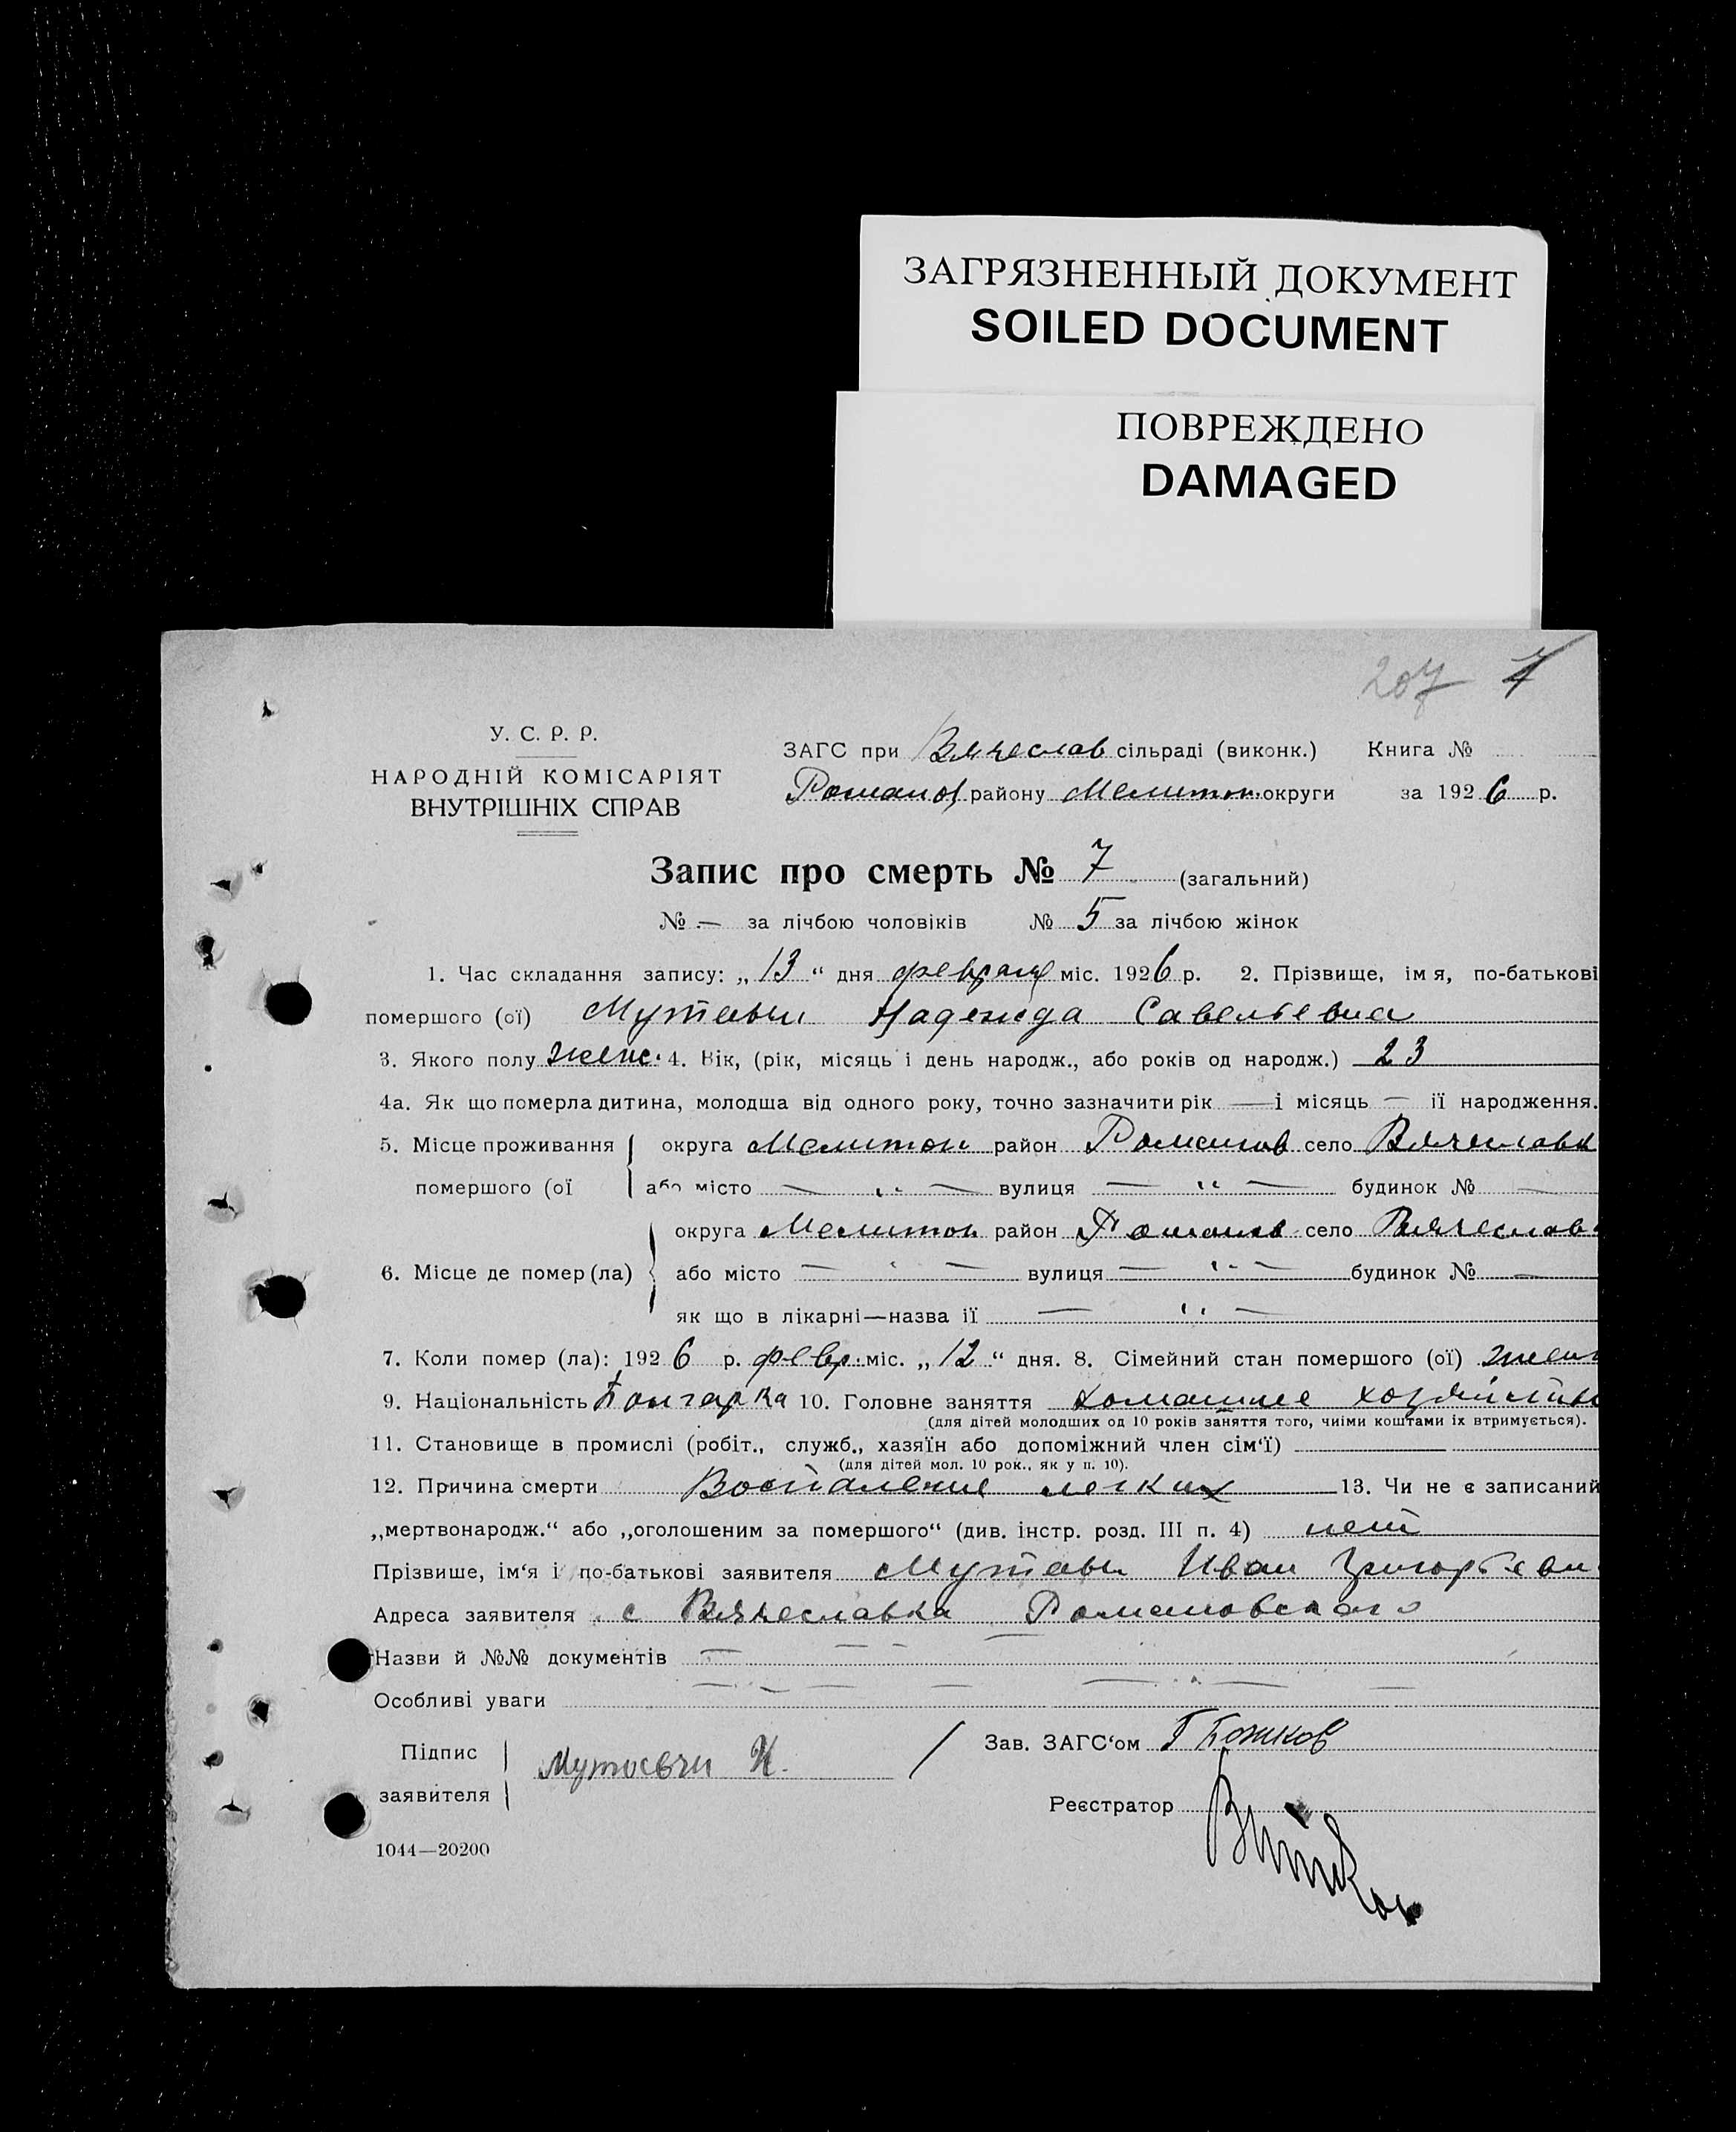 ЗАГРЯЗНЕННЫЙ ДОКУМЕНТ
SOILED DOCUMENT
ПОВРЕЖДЕНО
DAMAGED
207 7
У. С. Р. Р.
НАРОДНІЙ КОМІСАРІЯТ
ВНУТРІШНІХ СПРАВ
ЗАГС при Вячеслав сільраді (виконк.) Книга №
Романов району Мелитоп. округи за 1926 р.
Запис про смерть № 7 (загальний)
№ — за лічбою чоловіків № 5 за лічбою жінок
1. Час складання запису: „13“ дня февраля міс. 1926 р. 2. Прізвище, імя, по-батькові
помершого (ої) Мутавчи Надежда Савельевна
3. Якого полу женс. 4. Вік, (рік, місяць і день народж., або років од народж.) 23
4а. Як що померла дитина, молодша від одного року, точно зазначити рік — і місяць — її народження.
5. Місце проживання округа Мелитоп район Романов село Вячеславк
помершого (ої або місто — „ — вулиця — „ — будинок № —
округа Мелитоп район Романов село Вячеслав
6. Місце де помер (ла) або місто — „ — вулиця — „ — будинок № —
як що в лікарні—назва її — „ —
7. Коли помер (ла): 1926 р. февр. міс. „12“ дня. 8. Сімейний стан помершого (ої)
9. Національність Болгарка 10. Головне заняття домашнее хозяйство
(для дітей молодших од 10 років заняття того, чиїми коштами їх втримується).
11. Становище в промислі (робіт., служб., хазяїн або допоміжний член сім'ї) —
(для дітей мол. 10 рок., як у п. 10).
12. Причина смерти Воспаление легких 13. Чи не є записаний
„мертвонародж.“ або „оголошеним за помершого“ (див. інстр. розд. III п. 4) нет
Прізвише, ім'я і по-батькові заявителя Мутавчи Иван Григорьеви
Адреса заявителя с Вячеславка Романовского
Назви й №№ документів — — — —
Особливі уваги — — — —
Підпис
заявителя Мутавчи И.
Зав. ЗАГС'ом Г Божков
Реєстратор
1044—20200